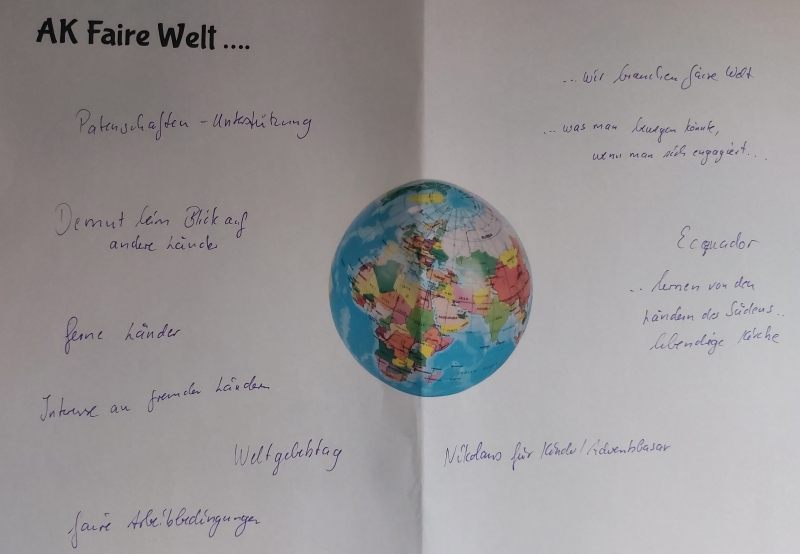 AK Faire Welt ....
Patenschaften - Unterstützung
Demut beim Blick auf
andere Länder
ferne Länder
Interesse an fremden Ländern
Weltgebetstag
faire Arbeitsbedingungen
... wir brauchen faire Welt
... was man bewegen könnte,
wenn man sich engagiert...
Ecquador
... lernen von den
Ländern des Südens...
lebendige Kirche
Nikolaus für Kinder / Adventsbasar